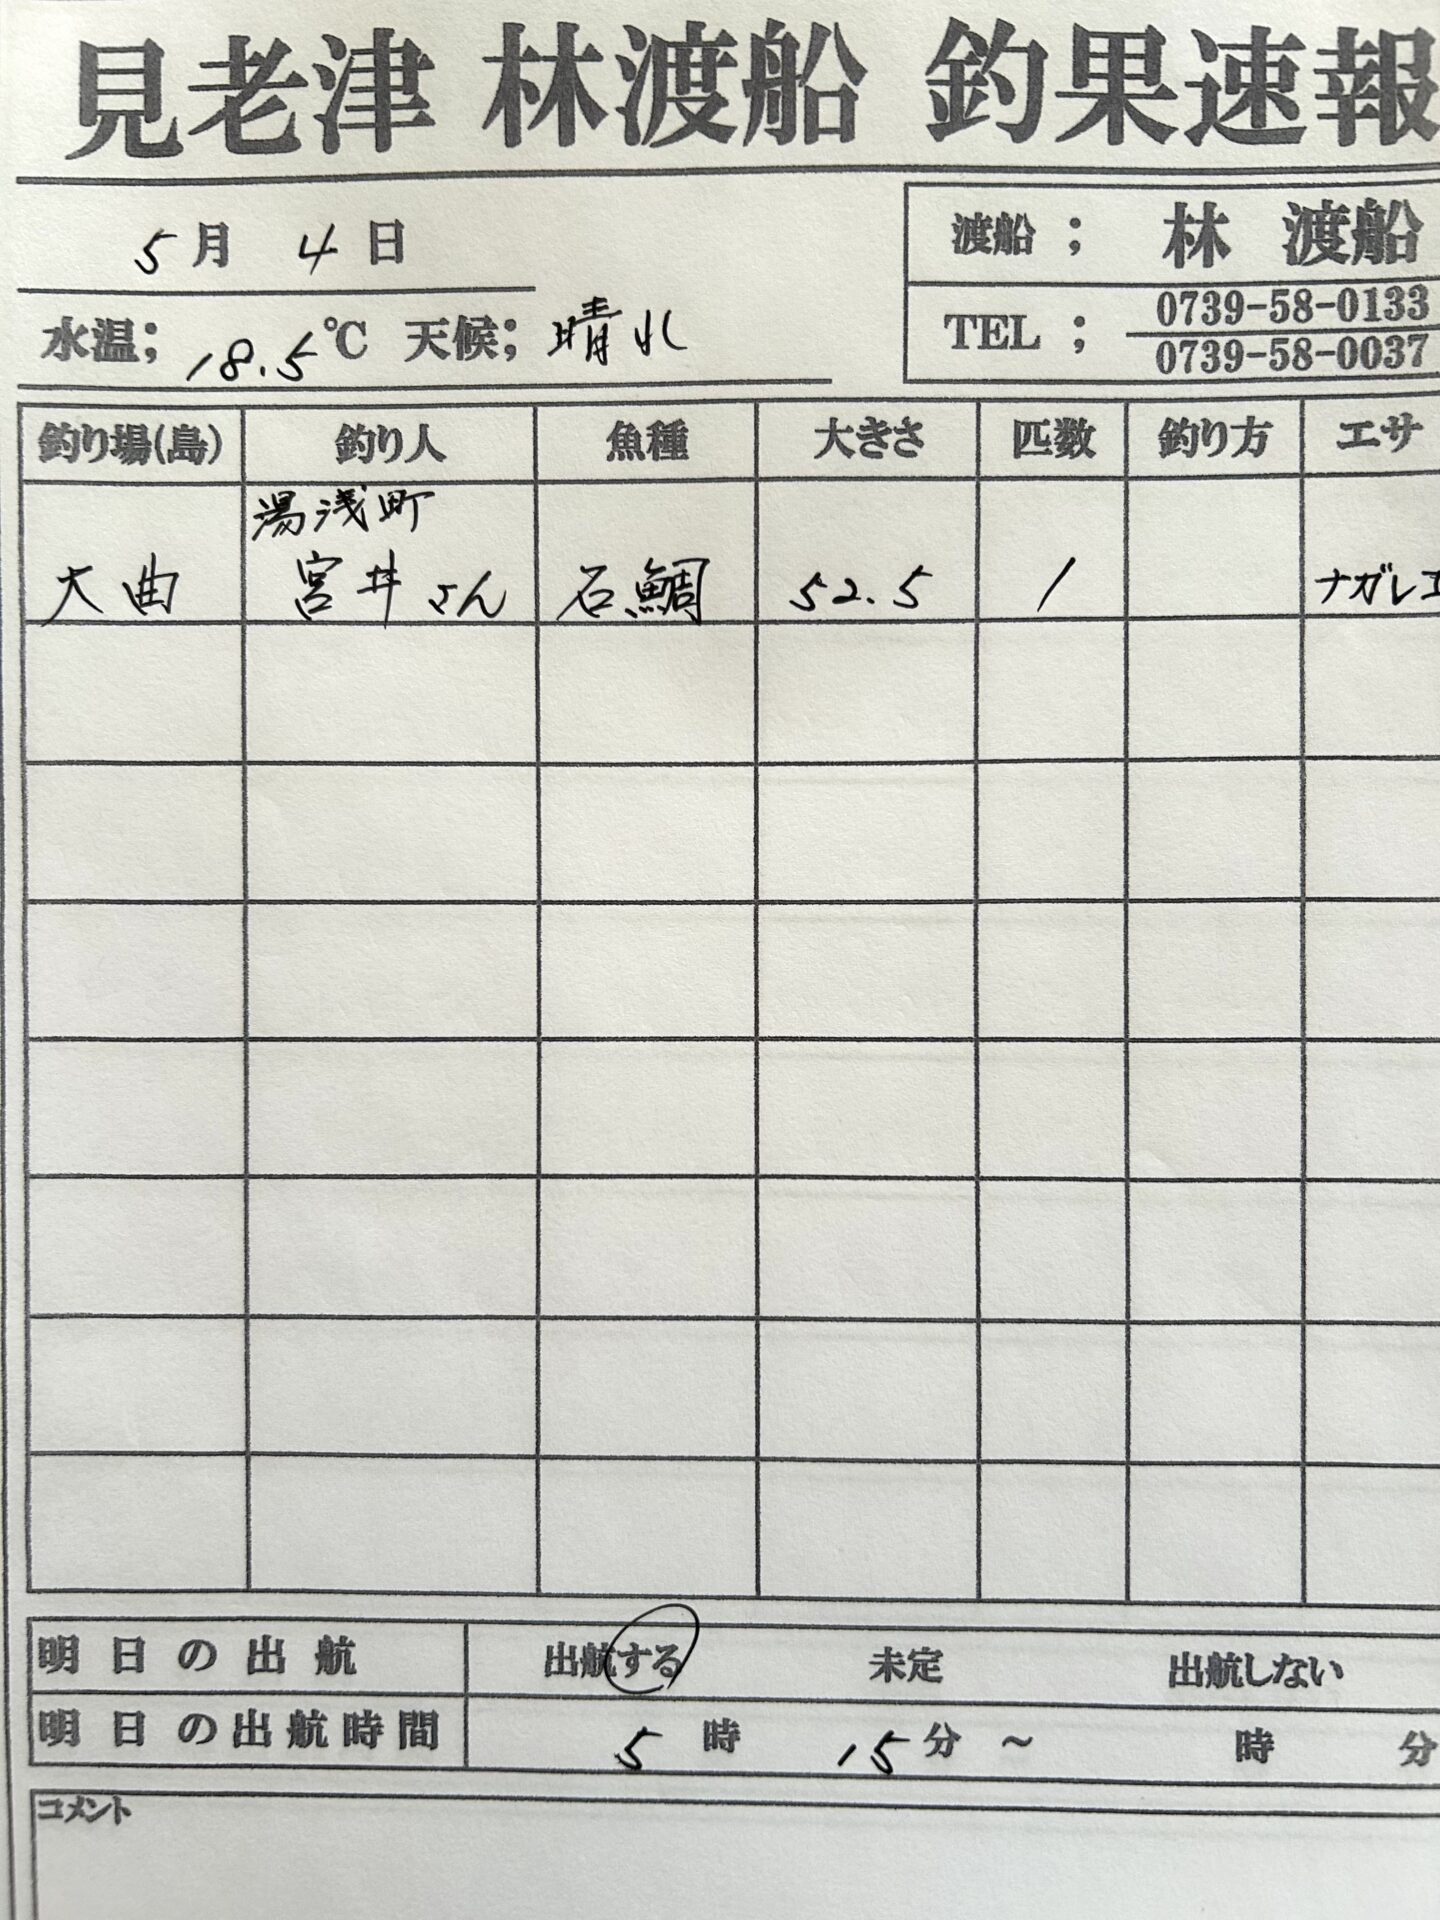 見老津 林渡船 釣果速報
5月 4日
渡船 ; 林 渡船
水温; 18.5℃ 天候; 晴れ
TEL ; 0739-58-0133
0739-58-0037
釣り場(島) 釣り人 魚種 大きさ 匹数 釣り方 エサ
湯浅町
大曲 宮井さん 石鯛 52.5 1 ナガレコ
明日の出航 出航する 未定 出航しない
明日の出航時間 5時 15分 ～ 時 分
コメント